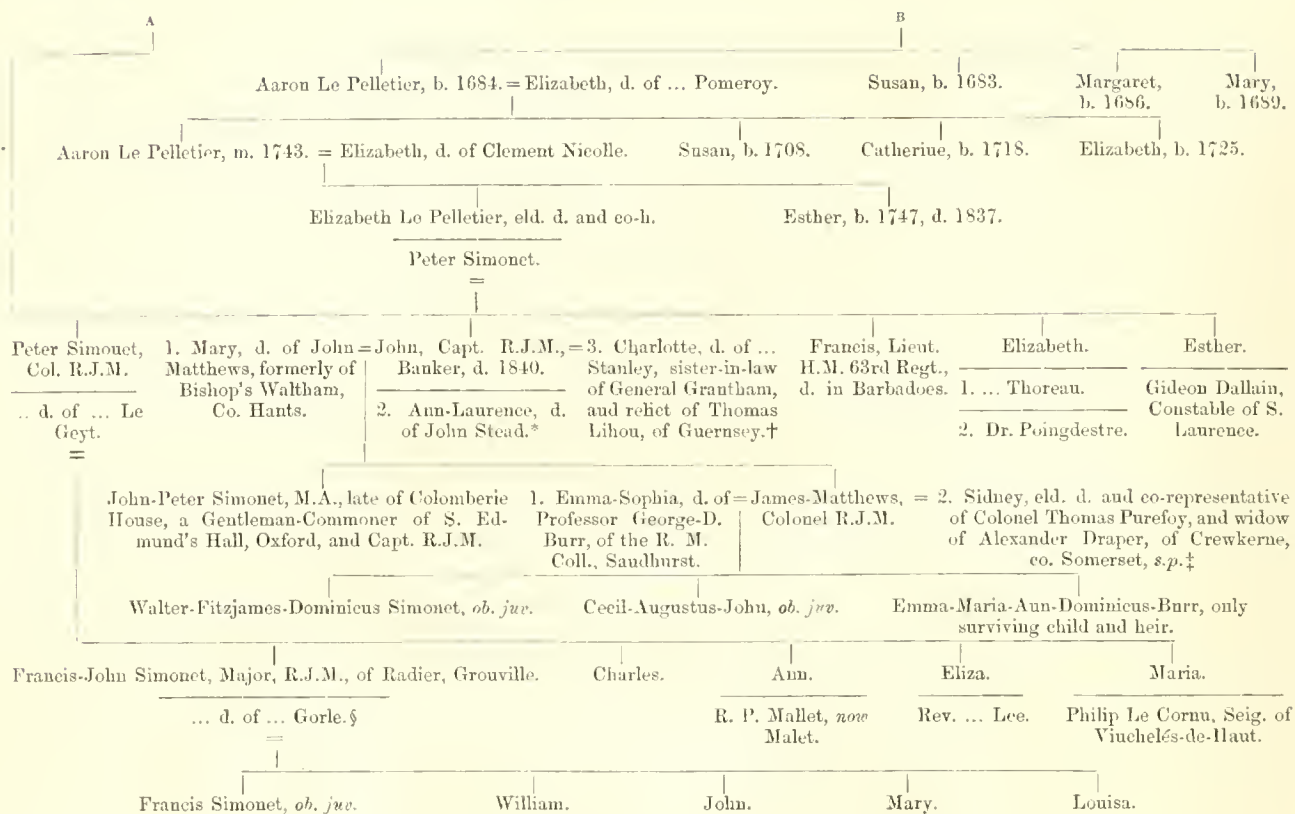 A
B
Aaron Le Pelletier, b. 1684. = Elizabeth, d. of ... Pomeroy.
Susan, b. 1683.
Margaret,
b. 1686.
Mary,
b. 1689.
Aaron Le Pelletier, m. 1743. = Elizabeth, d. of Clement Nicolle.
Susan, b. 1708.
Catherine, b. 1718.
Elizabeth, b. 1725.
Elizabeth Le Pelletier, eld. d. and co-h.
Esther, b. 1747, d. 1837.
Peter Simonet.
=
Peter Simonet,
Col. R.J.M.
.. d. of ... Le
Geyt.
=
1. Mary, d. of John
Matthews, formerly of
Bishop's Waltham,
Co. Hants.
=John, Capt. R.J.M.,=
Banker, d. 1840.
2. Ann-Laurence, d.
of John Stead.*
3. Charlotte, d. of ...
Stanley, sister-in-law
of General Grantham,
and relict of Thomas
Lihou, of Guernsey.†
Francis, Lieut.
H.M. 63rd Regt.,
d. in Barbadoes.
Elizabeth.
1. ... Thoreau.
2. Dr. Poingdestre.
Esther.
Gideon Dallain,
Constable of S.
Laurence.
John-Peter Simonet, M.A., late of Colomberie
House, a Gentleman-Commoner of S. Ed-
mund's Hall, Oxford, and Capt. R.J.M.
1. Emma-Sophia, d. of
Professor George-D.
Burr, of the R. M.
Coll., Sandhurst.
=James-Matthews, =
Colonel R.J.M.
2. Sidney, eld. d. and co-representative
of Colonel Thomas Purefoy, and widow
of Alexander Draper, of Crewkerne,
co. Somerset, s.p.‡
Walter-Fitzjames-Dominicus Simonet, ob. juv.
Cecil-Augustus-John, ob. juv.
Emma-Maria-Ann-Dominicus-Burr, only
surviving child and heir.
Francis-John Simonet, Major, R.J.M., of Radier, Grouville.
... d. of ... Gorle.§
=
Charles.
Ann.
R. P. Mallet, now
Malet.
Eliza.
Rev. ... Lee.
Maria.
Philip Le Cornu, Seig. of
Vinchelés-de-Haut.
Francis Simonet, ob. juv.
William.
John.
Mary.
Louisa.